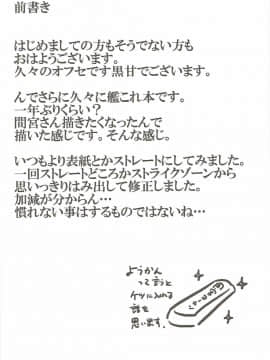 前書き
はじめましての方もそうでない方も
おはようございます。
久々のオフセです黒甘でございます。
んでさらに久々に艦これ本です。
一年ぶりくらい？
間宮さん描きたくなったんで
描いた感じです。そんな感じ。
いつもより表紙とかストレートにしてみました。
一回ストレートどころかストライクゾーンから
思いっきりはみ出して修正しました。
加減が分からん…
慣れない事はするものではないね…
ようかん
って言うと
を
思います。